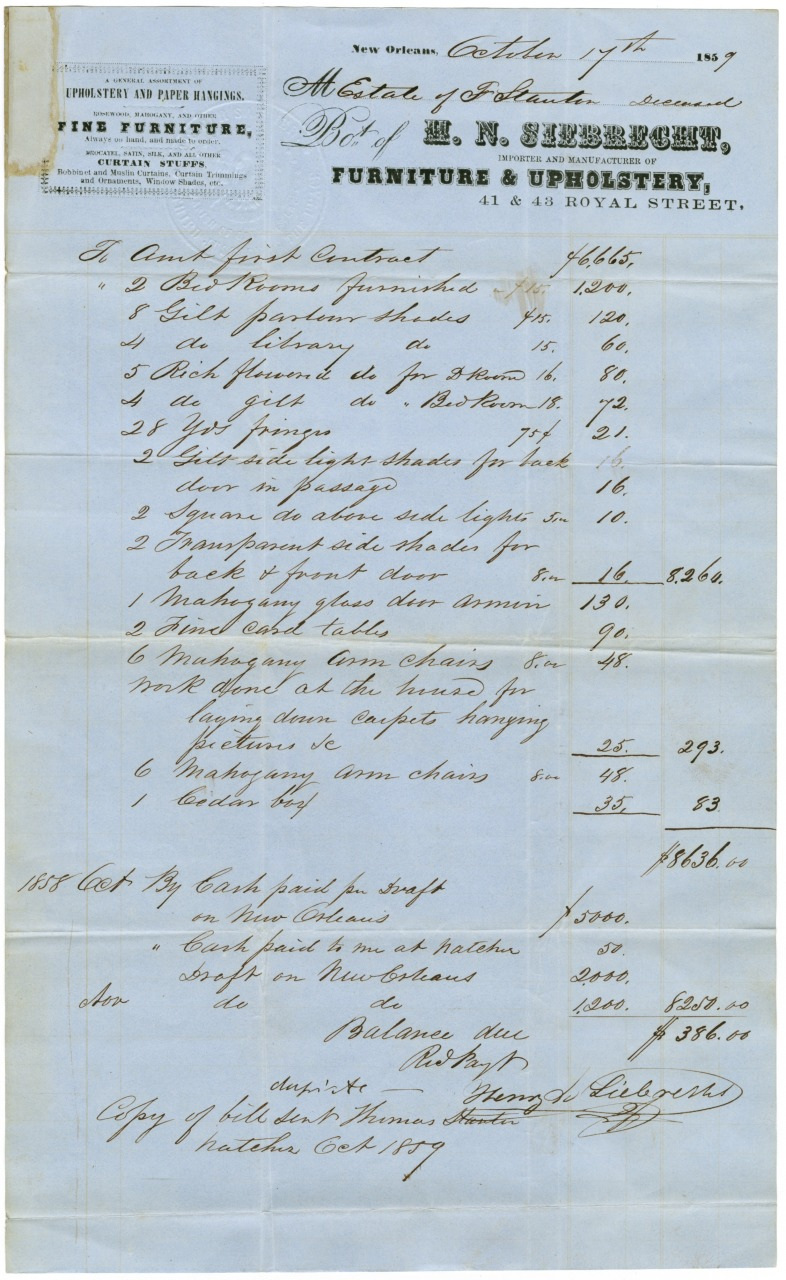 A GENERAL ASSORTMENT OF
UPHOLSTERY AND PAPER HANGINGS.
ROSEWOOD, MAHOGANY, AND OTHER
FINE FURNITURE,
Always on hand, and made to order.
BROCATEL, SATIN, SILK, AND ALL OTHER
CURTAIN STUFFS.
Bobbinet and Muslin Curtains, Curtain Trimmings
and Ornaments, Window Shades, etc.,
New Orleans, October 17th 1859
M Estate of F Stanton Deceased
Bot. of H. N. SIEBRECHT,
IMPORTER AND MANUFACTURER OF
FURNITURE & UPHOLSTERY,
41 & 43 ROYAL STREET,
To Amt first Contract $6,665.
" 2 Bed Rooms furnished 1,200.
8 Gilt parlour shades $15. 120.
4 do library do 15. 60.
5 Rich flowered do for D Room 16. 80.
4 do gilt do " Bed Room 18. 72.
28 Yds fringes 75¢ 21.
2 Gilt side light shades for back 16.
door in passage 16.
2 Square do above side lights 5.00 10.
2 Transparent side shades for
back & front door 8.00 16. 8.260.
1 Mahogany glass door armin 130.
2 Fine card tables 90.
6 Mahogany Arm chairs 8.00 48.
Work done at the house for
laying down carpets hanging
pictures &c 25. 293.
6 Mahogany Arm chairs 8.00 48.
1 Cedar box 35. 83
$8636.00
1858 Oct By Cash paid per Draft
on New Orleans $5000.
" Cash paid to me at Natchez 50.
Draft on New Orleans 2,000.
Nov do do 1,200. 8250.00
Balance due $386.00
Recd Payt
Henry N Siebrecht
Copy of bill sent Thomas Stanton
Natchez Oct 1859